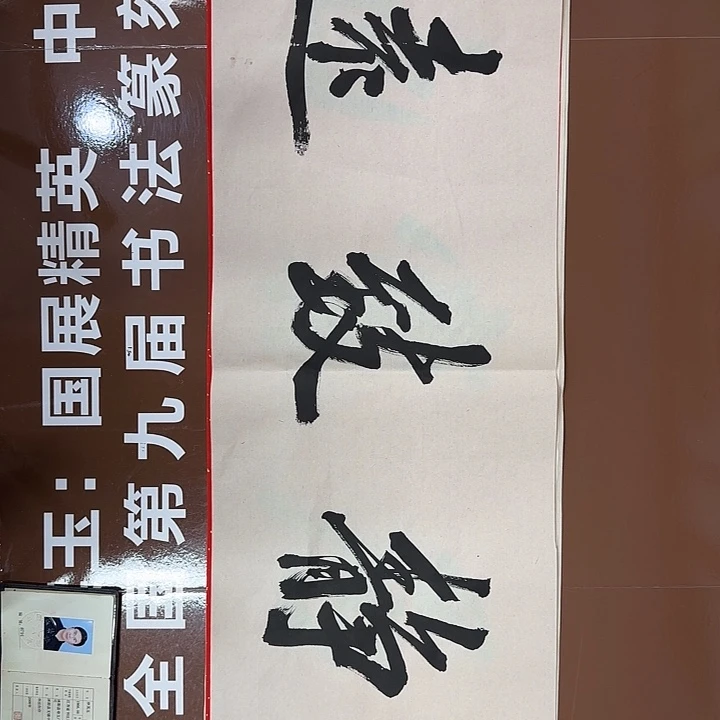 玉：国展精英 中
全国第九届书法篆
静致远